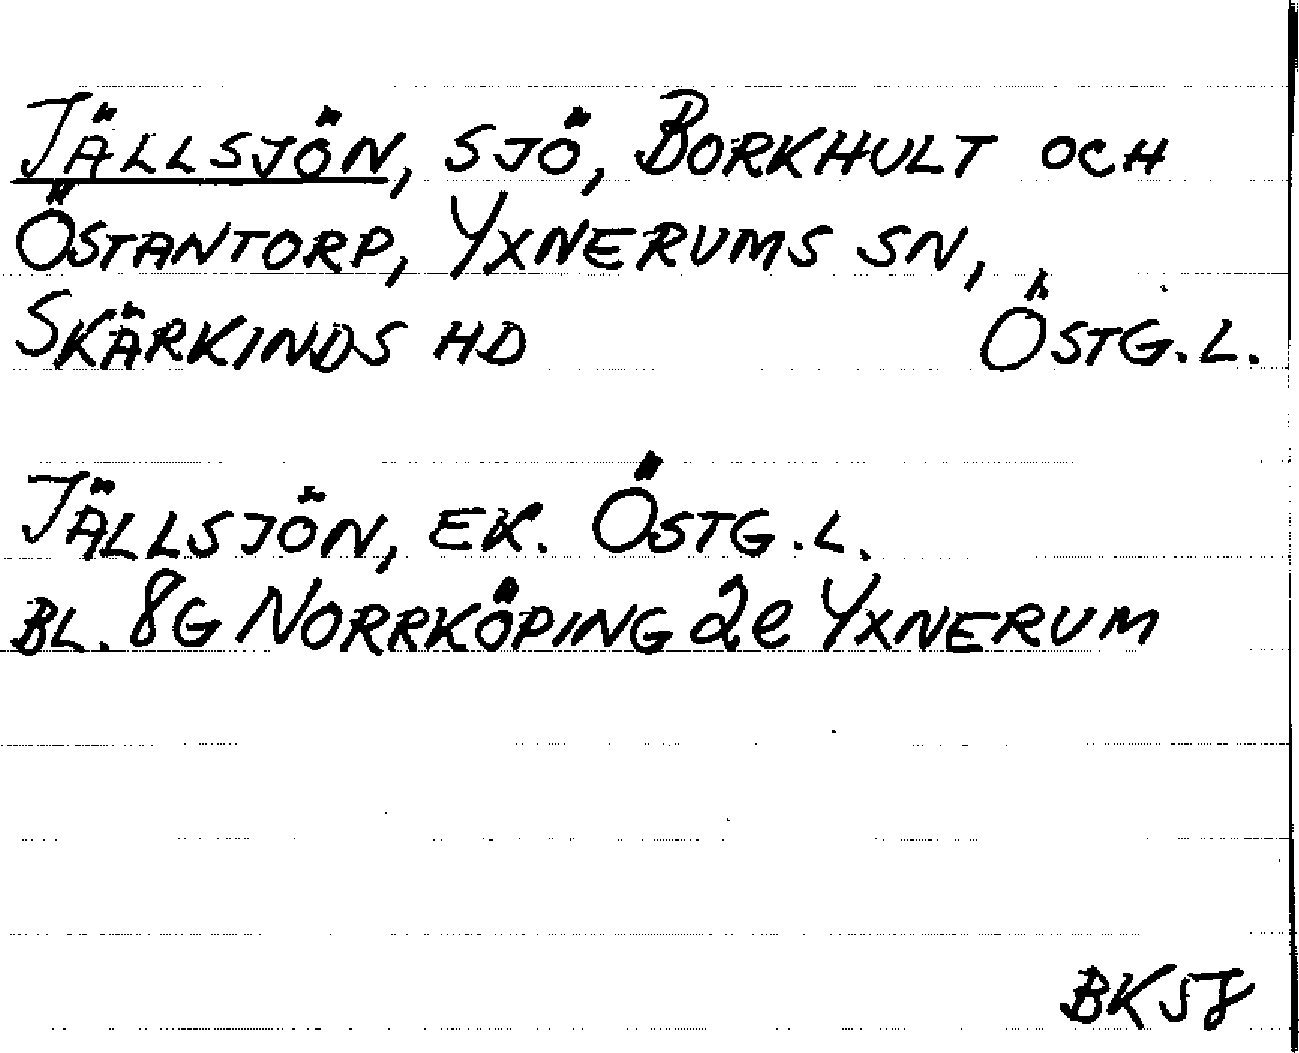 Jällsjön, sjö, Borkhult och
Östantorp, Yxnerums sn,
Skärkinds hd Östg.l.
Jällsjön, ek. Östg.l.
Bl. 8G Norrköping 2e Yxnerum